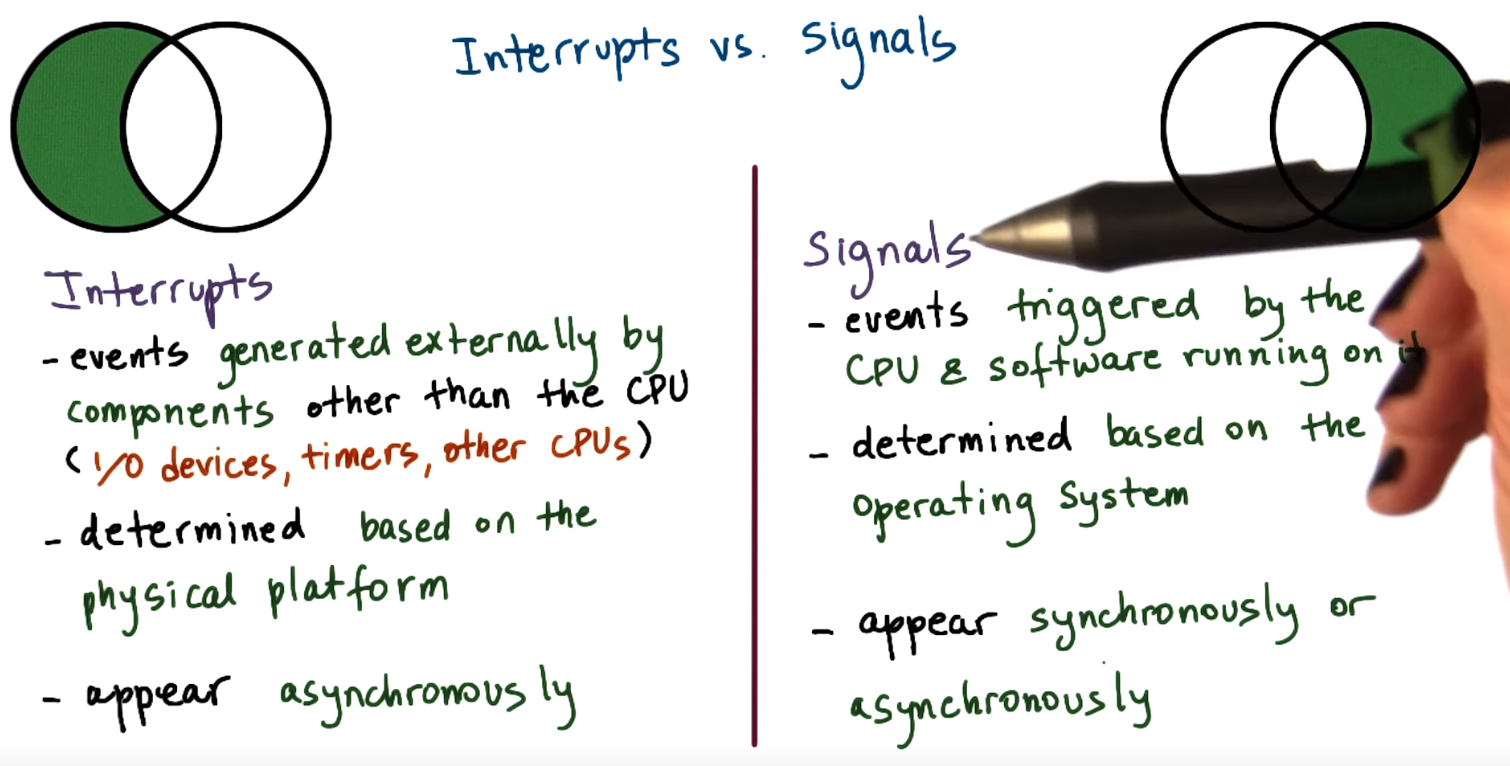 Interrupts vs. Signals
Interrupts
- events generated externally by
components other than the CPU
(I/O devices, timers, other CPUs)
- determined based on the
physical platform
- appear asynchronously
Signals
- events triggered by the
CPU & software running on it
- determined based on the
Operating System
- appear synchronously or
asynchronously